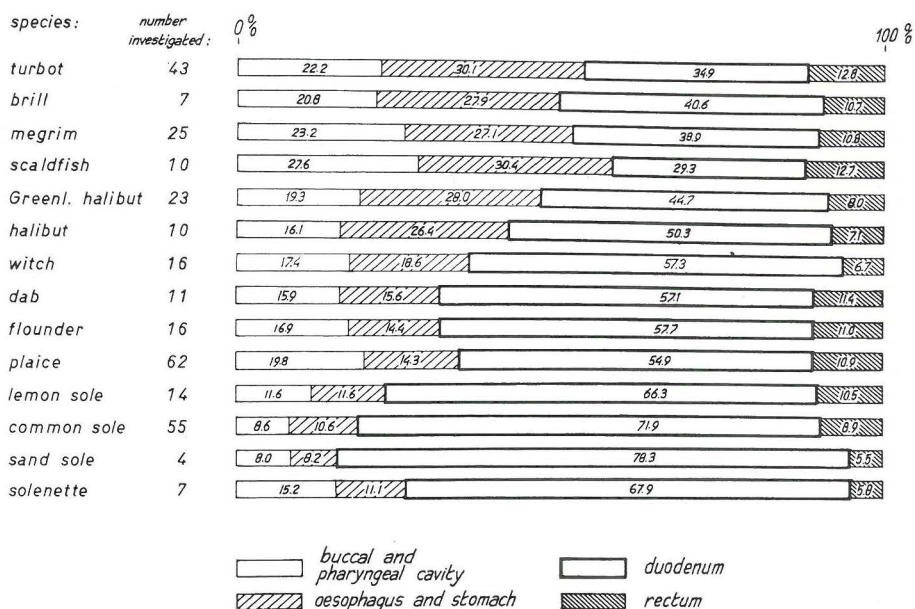 species: number investigated: 0 % 100 %
turbot 43 22.2 30.1 34.9 12.8
brill 7 20.8 27.9 40.6 10.7
megrim 25 23.2 27.1 38.9 10.8
scaldfish 10 27.6 30.4 29.3 12.7
Greenl. halibut 23 19.3 28.0 44.7 8.0
halibut 10 16.1 26.4 50.3 7.1
witch 16 17.4 18.6 57.3 6.7
dab 11 15.9 15.6 57.1 11.4
flounder 16 16.9 14.4 57.7 11.0
plaice 62 19.8 14.3 54.9 10.9
lemon sole 14 11.6 11.6 66.3 10.5
common sole 55 8.6 10.6 71.9 8.9
sand sole 4 8.0 8.2 78.3 5.5
solenette 7 15.2 11.1 67.9 5.8
buccal and
pharyngeal cavity
duodenum
oesophagus and stomach
rectum